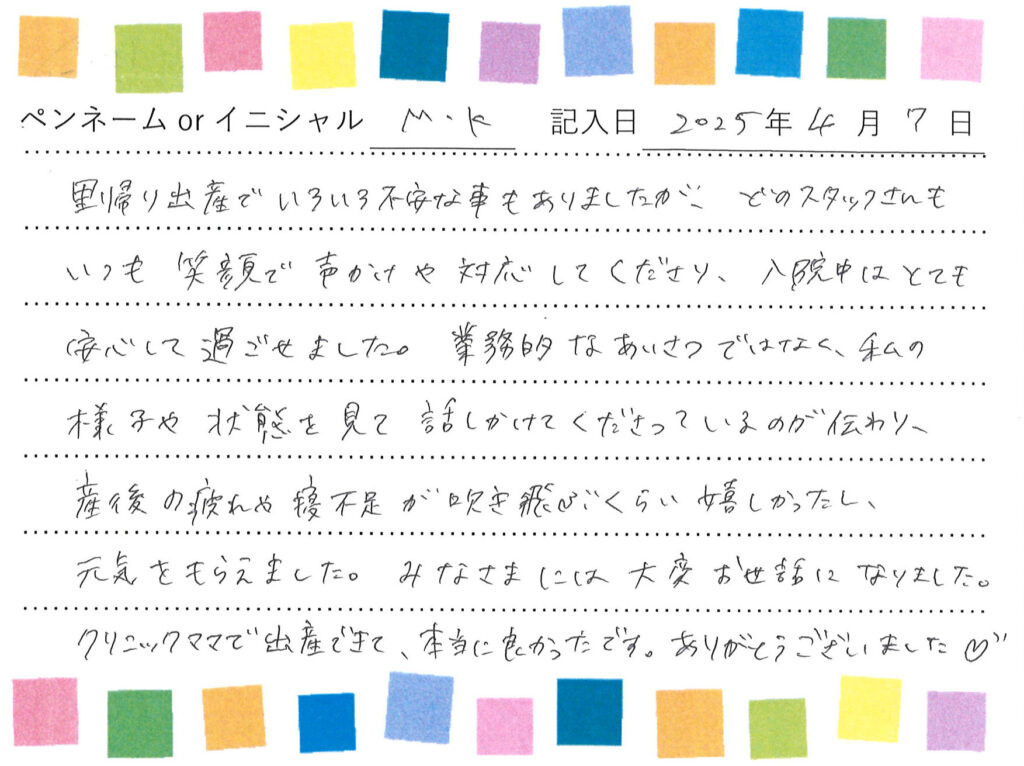 ペンネーム or イニシャル M・K 記入日 2025年 4月 7日
里帰り出産でいろいろ不安な事もありましたが、どのスタッフさんも
いつも 笑顔で 声かけや 対応してくださり、入院中はとても
安心して 過ごせました。業務的なあいさつではなく、私の
様子や 状態を見て 話しかけてくださっているのが伝わり、
産後の疲れや寝不足が吹き飛ぶくらい嬉しかったし、
元気をもらえました。みなさまには大変お世話になりました。
クリニックママで出産できて、本当に良かったです。ありがとうございました♡